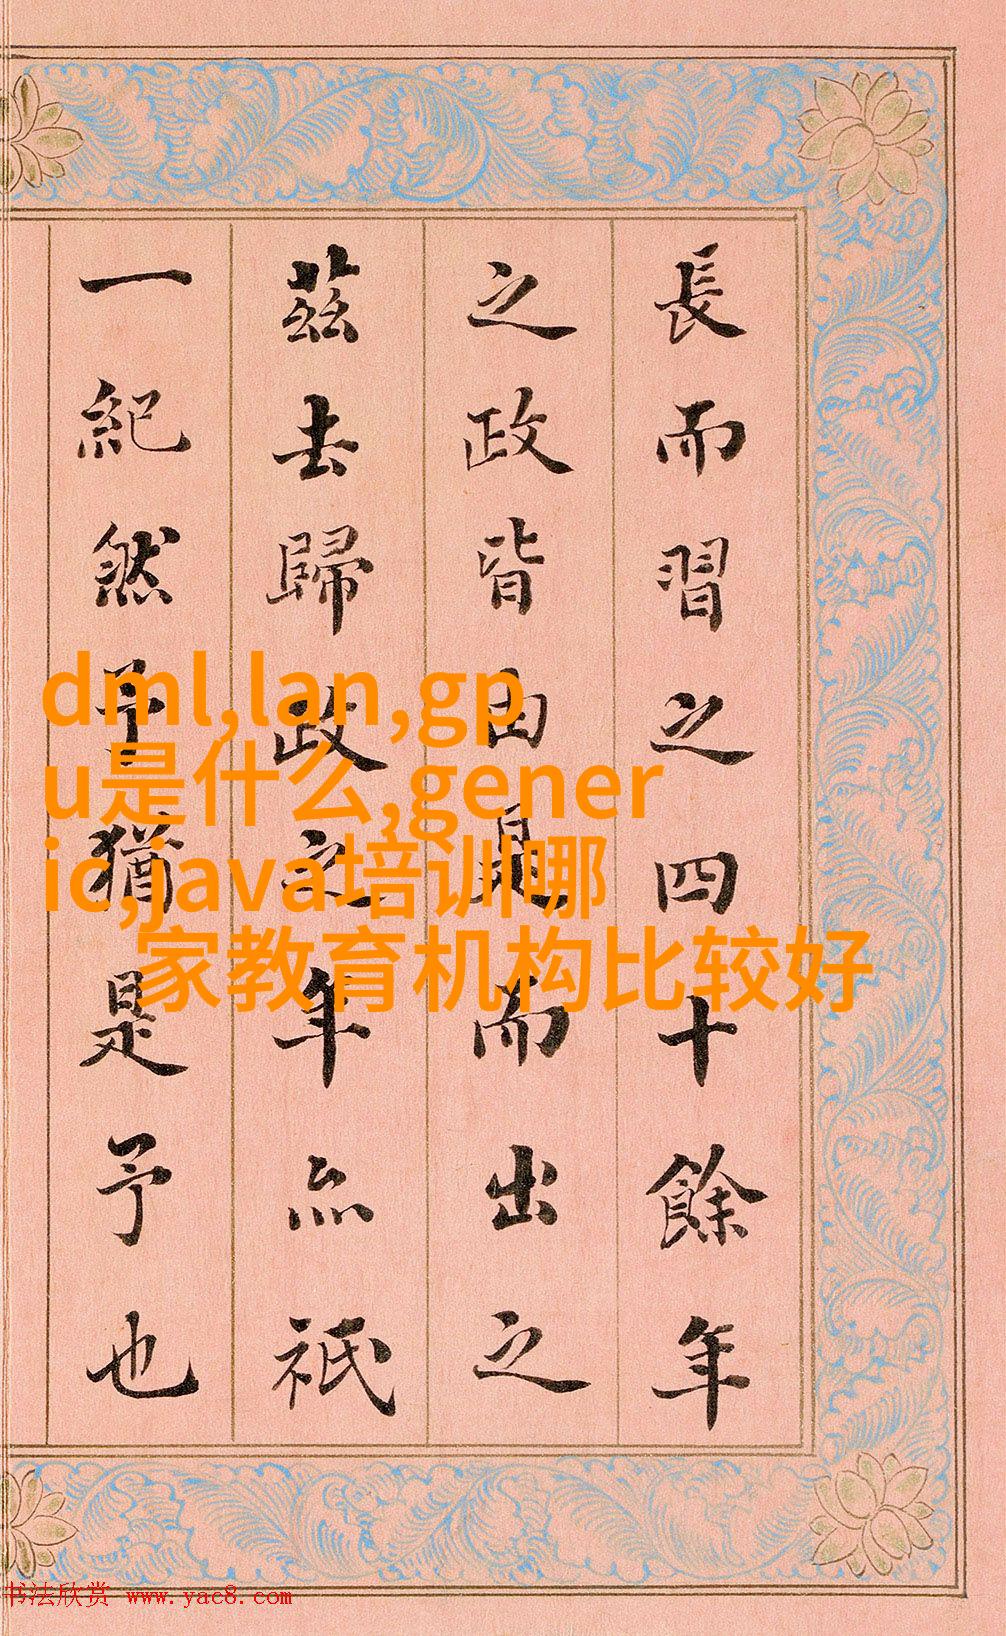 長而習之四十餘年
之政皆由是而出之
茲去歸政之年亦祇
一紀然予猶是予也
dml,lan,gp
u是什么,gener
ic,java培训哪
家教育机构比较好
书法欣赏 www.yac8.com